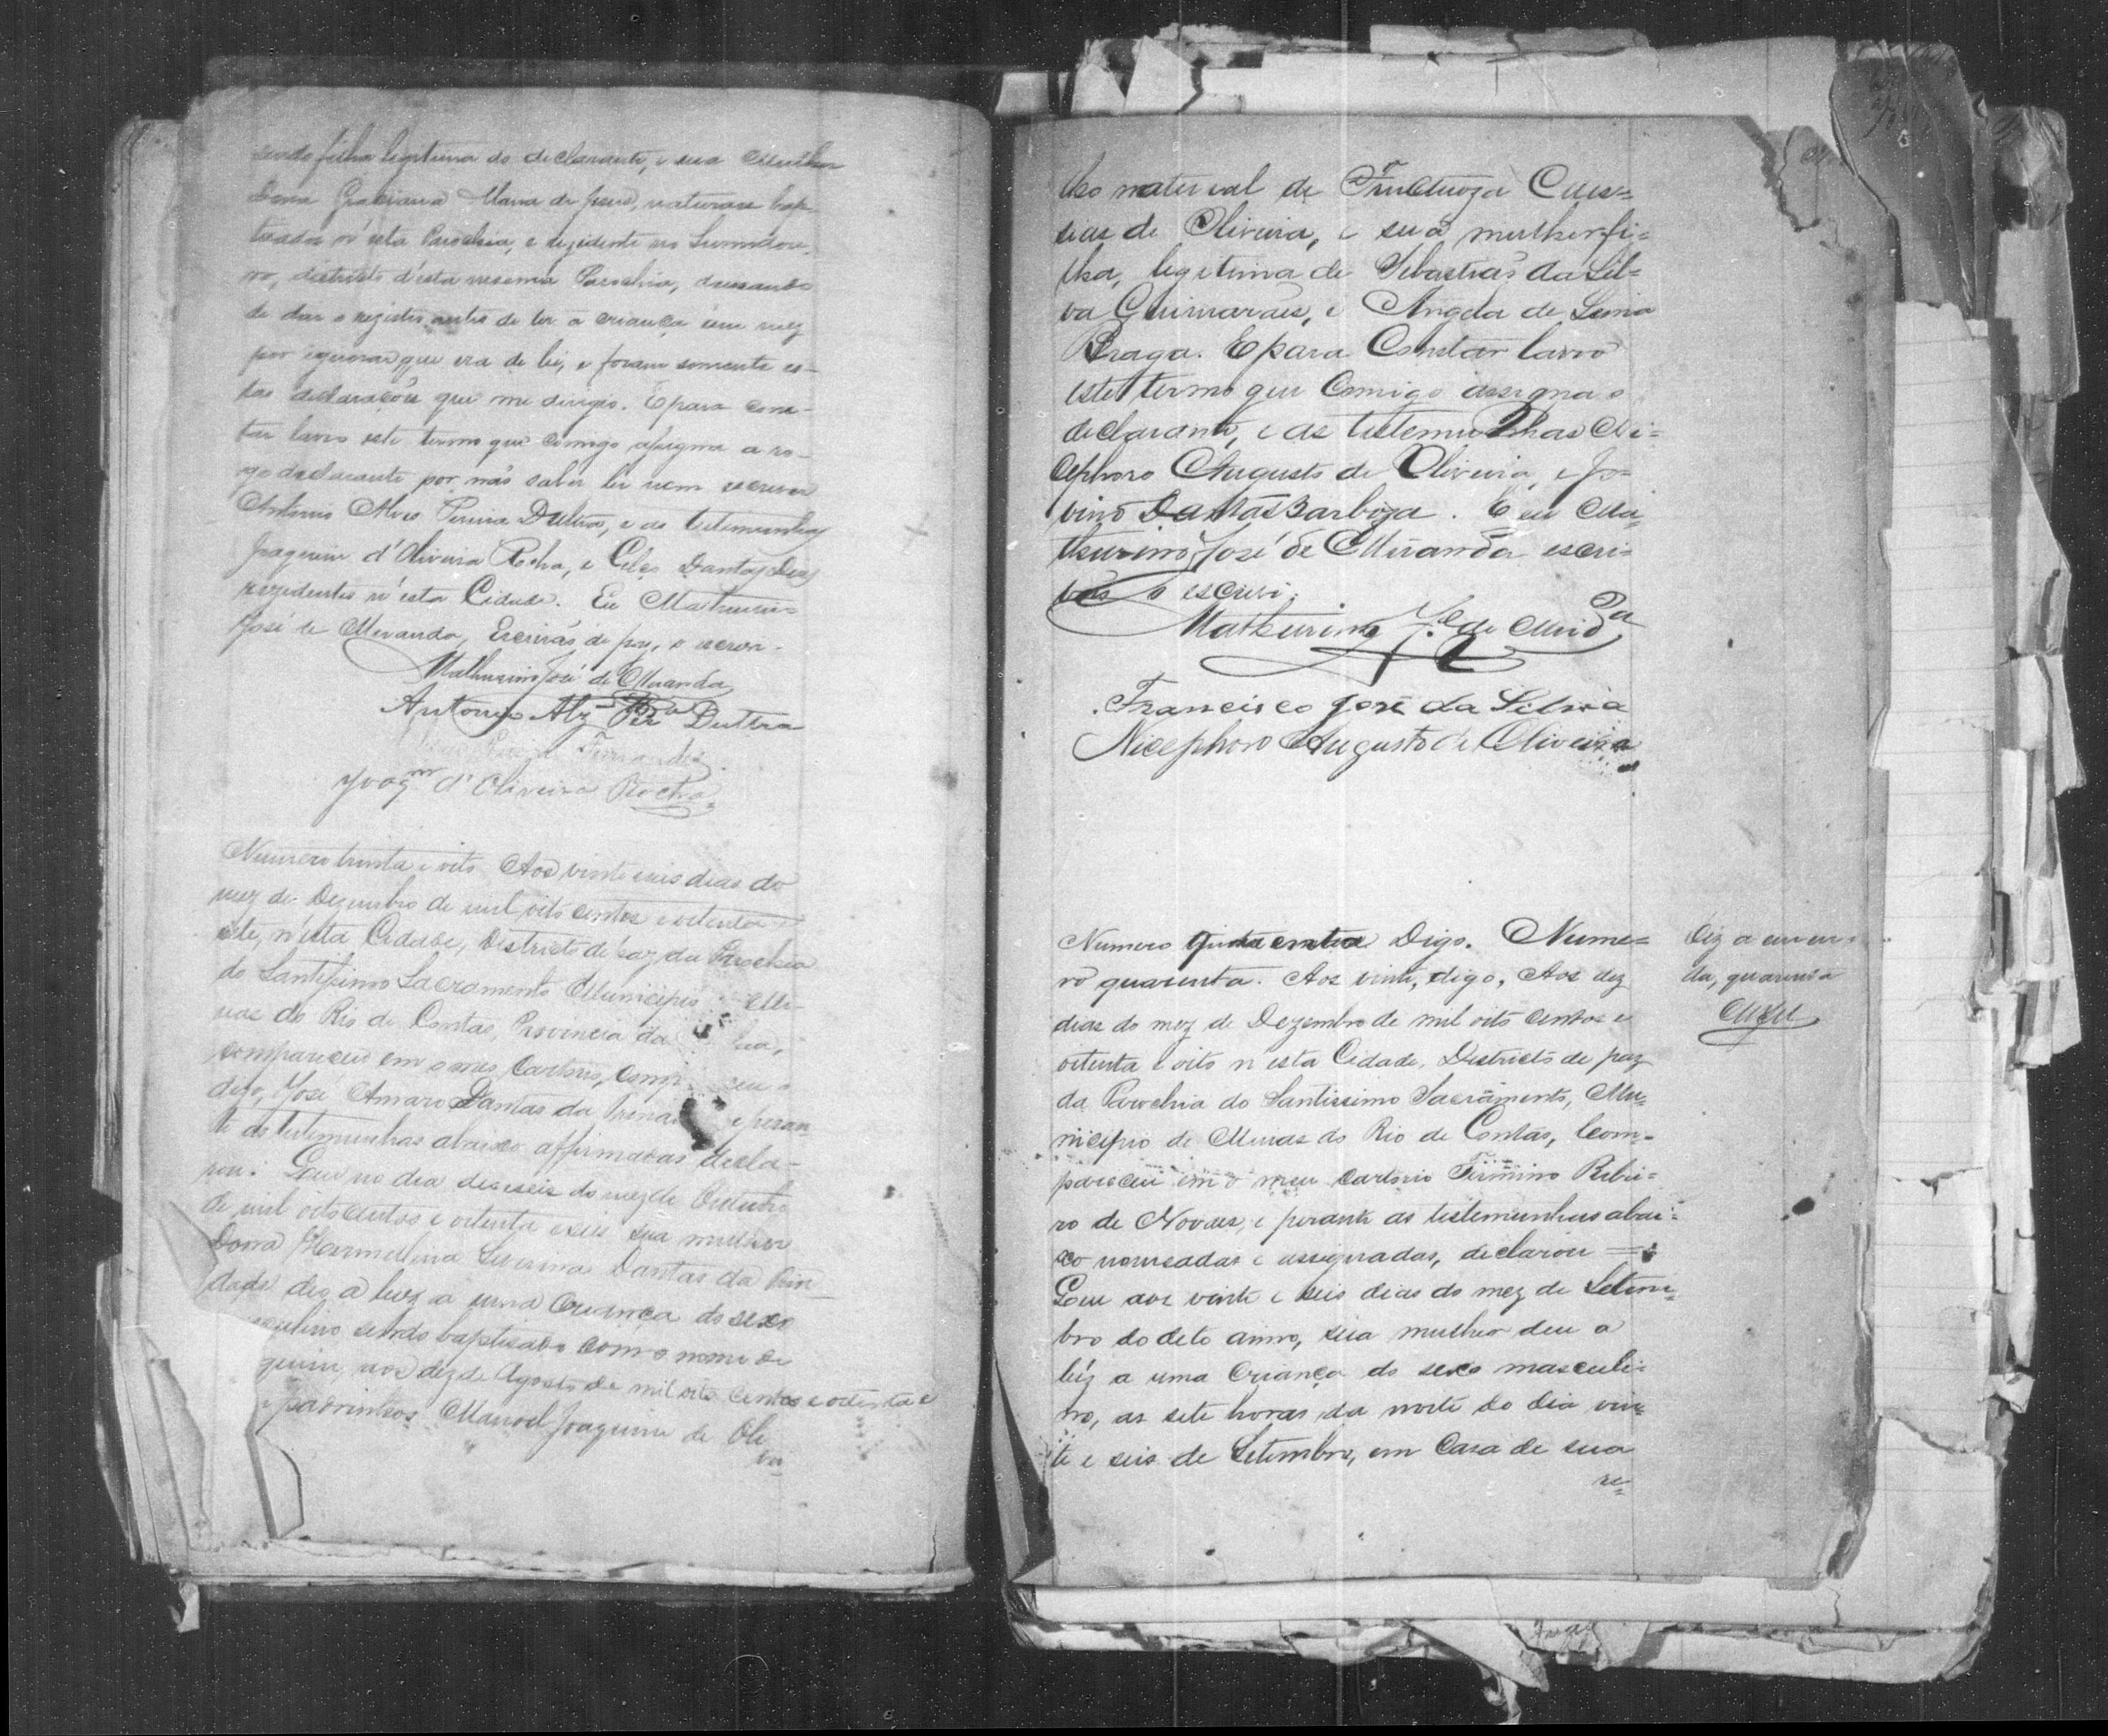 sendo filha legitima do declarante, e sua mulher
Dona Graciana Maria de Jesus, naturaes bap-
tisados n'esta Parochia, e rezidente no
ro, districto d'esta mesma Parochia, deixando
de dar o registro antes de ter a criança um mez
por ignorar que era de lei, e foram somente es-
tas declarações que me dirigio. E para cons-
tar lavro este termo que comigo assigna a ro-
go declarante por não saber ler nem escrever
Antonio Alves Pereira Dultra, e as testemunhas
Joaquim d'Oliveira Rocha, e Dantas
rezidentes n'esta Cidade. Eu Mathurino
José de Miranda, Escrivão de paz, o escrevi.
Mathurino José de Miranda
Antonio Alz Per.ª Duttra
Fernandes
Joaq.m d'Oliveira Rocha
Numero trinta e oito Aos vinte seis dias do
mez de Dezembro de mil oito centos e oitenta
sete, n'esta Cidade, Districto de paz da Parochia
do Santissimo Sacramento Municipio Mi-
nas do Rio de Contas, Provincia da hia,
compareceu em o meu Cartorio, comp ceu o
digo, José Amaro Dantas da e peran-
te as testemunhas abaixo affirmadas decla-
rou: Que no dia deseseis do mez de Outubro
de mil oitocentos e oitenta e seis sua mulher
Dona Hermellina Dantas da Trin-
dade deo a luz a uma Criança do sexo
sculino sendo baptisado com o nome de
quim, aos dez de Agosto de mil oito centos e oitenta e
e padrinhos Manoel Joaquim de Oli
vei
lho natural de Fructuoza Cas-
sias de Oliveira, e sua mulher fi-
lha, legitima de Sebastião da Sil-
va Guimarães, e Angela de Lima
Braga. E para Constar lavro
este termo que Comigo assigna o
declarante, e as testemunhas Ni-
cephoro Augusto de Oliveira, e Jo-
vino Dantas Barboza. E eu Ma-
thurino José de Miranda escri-
vão o escrevi.
Mathurino J.e de Mird.a
Francisco José da Silva
Nicephoro Augusto de Oliveira
Numero Digo. Nume-
ro quarenta. Aos vinte, digo, Aos dez
dias do mez de Dezembro de mil oito centos e
oitenta e oito n'esta Cidade, Districto de paz
da Parochia do Santissimo Sacramento, Mu-
nicipio de Minas do Rio de Contas, Com-
pareceu em o meu Cartorio Firmino Ribei-
ro de Novaes, e perante as testemunhas abai-
xo nomeadas e assignadas, declarou =
Que aos vinte e seis dias do mez de Setem-
bro do dito anno, sua mulher deu a
luz a uma Criança do sexo masculi-
no, as sete horas da noite do dia vin-
te e seis de Setembro, em Casa de sua
re-
Diz a emen-
da, quarenta